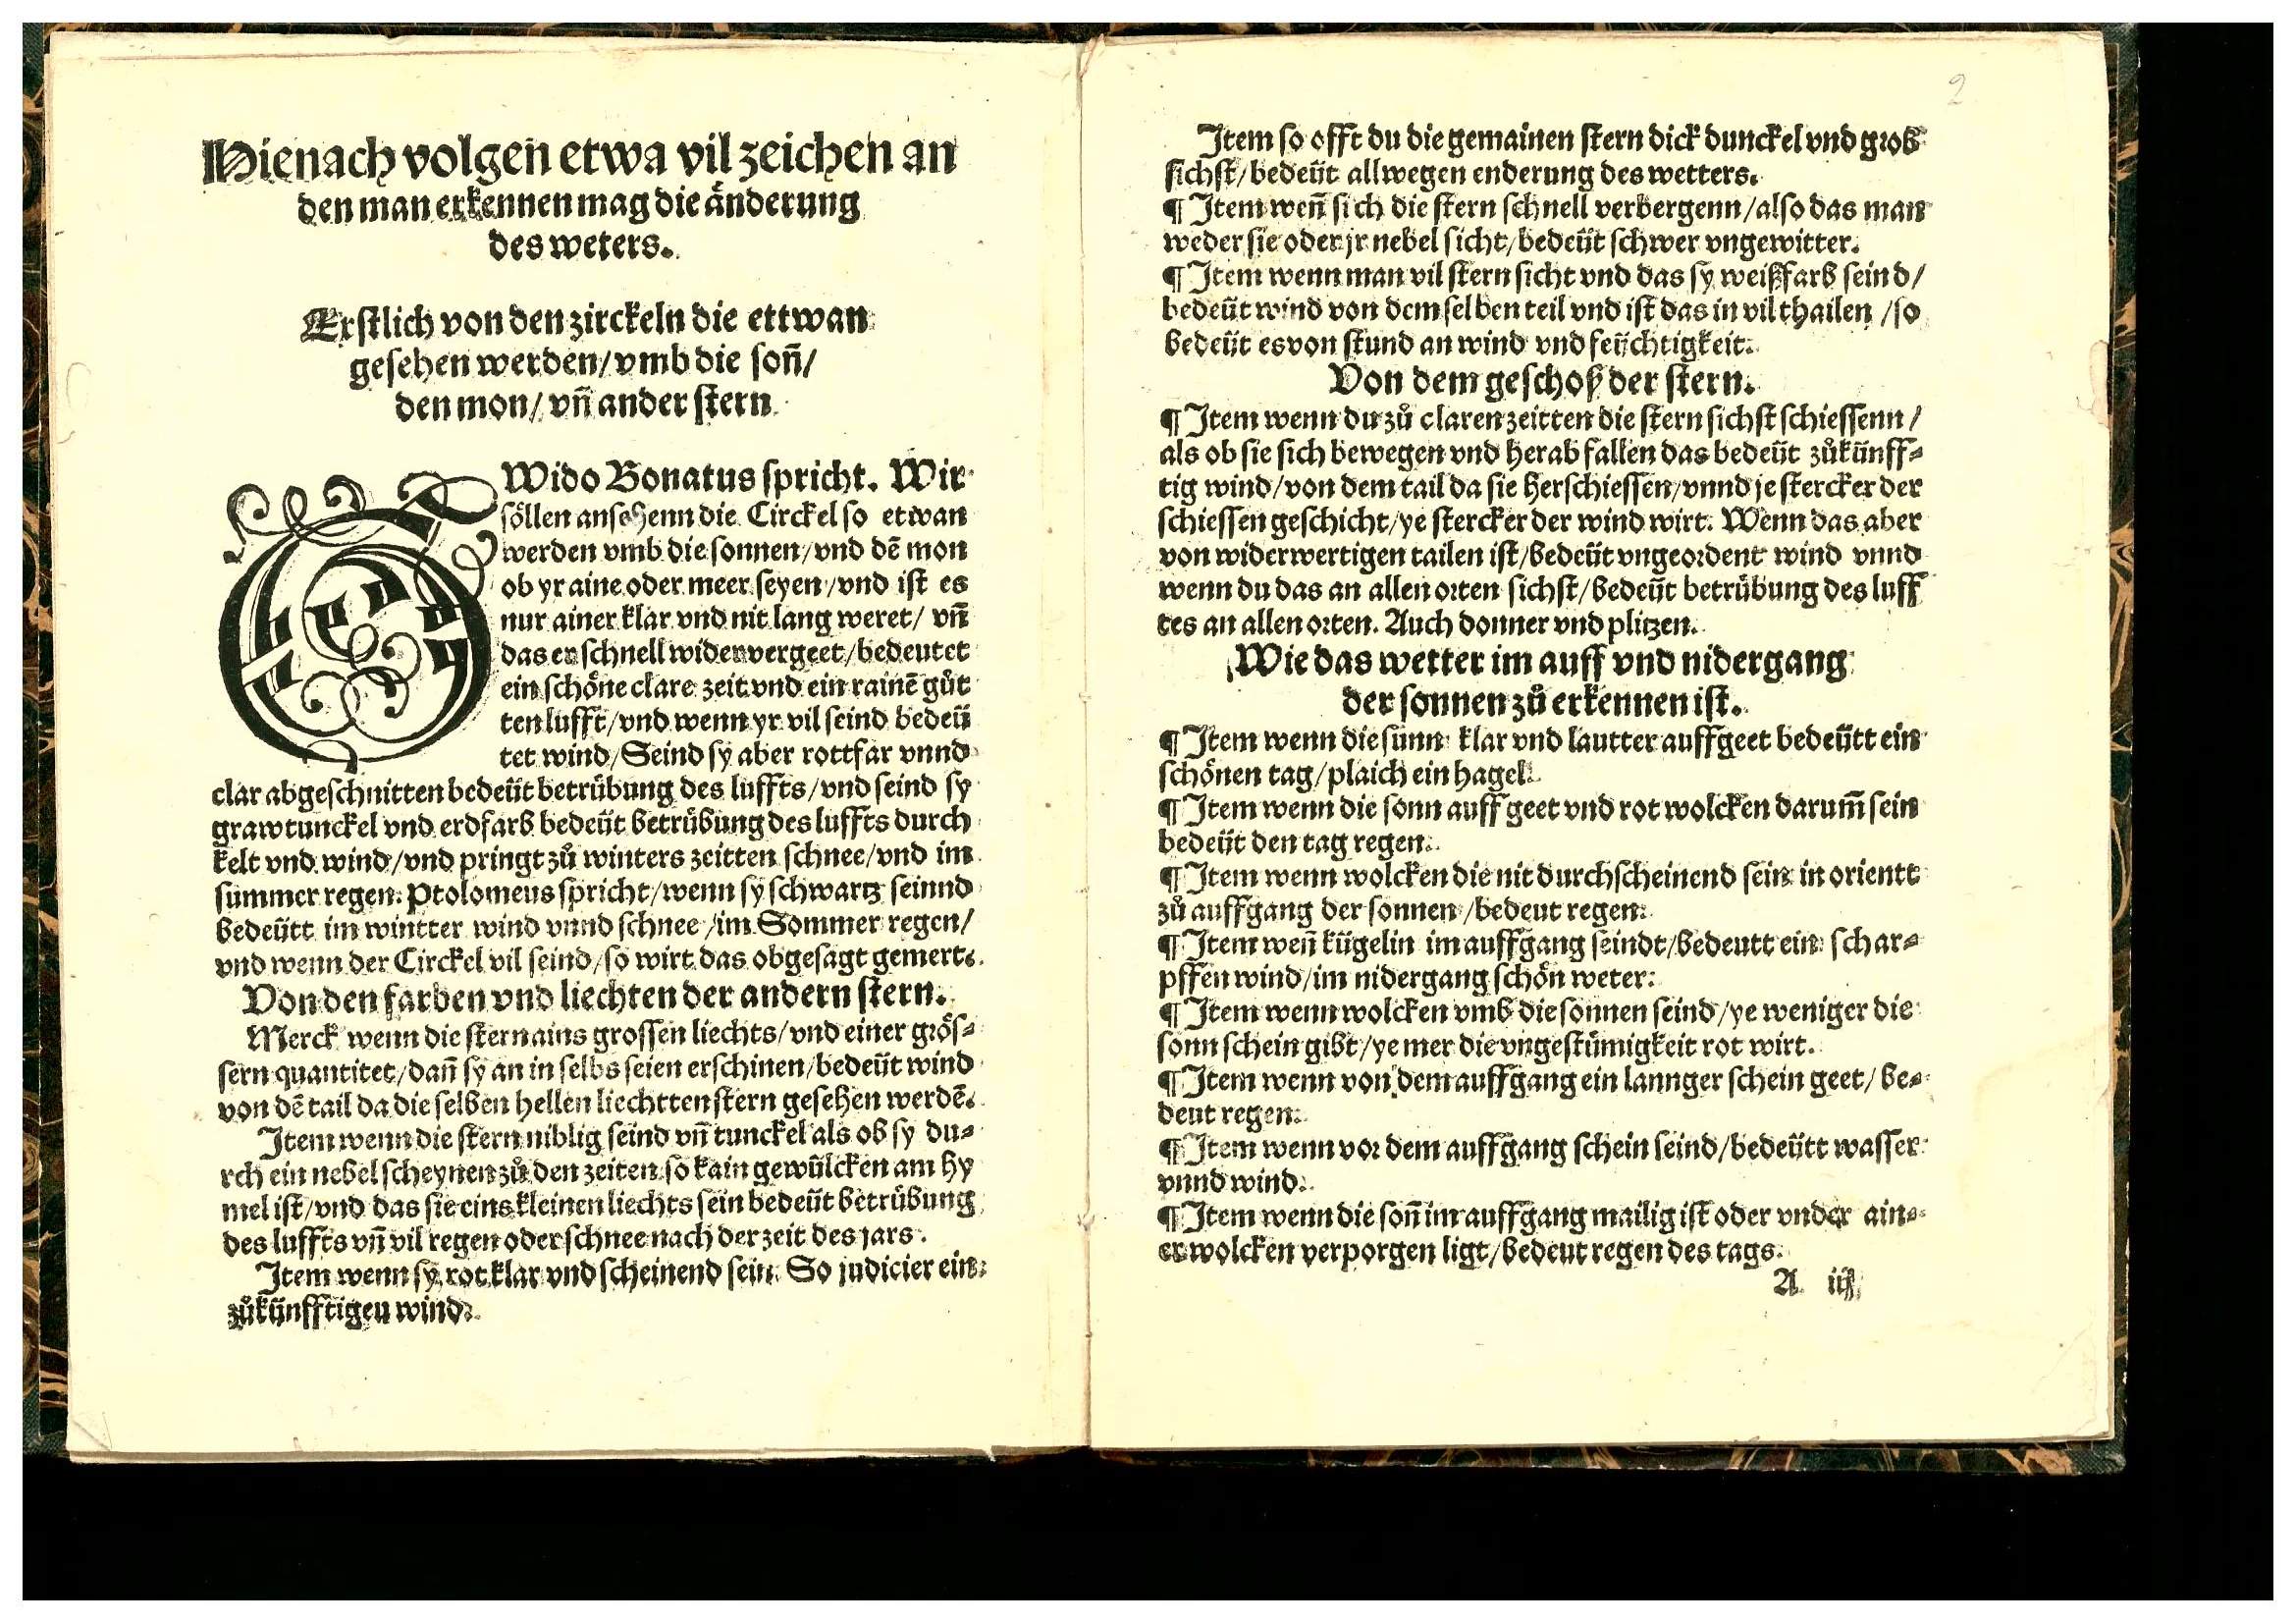 Hienach volgen etwa vil zeichen an
den man erkennen mag die änderung
des weters.
Erstlich von den zirckeln die ettwan
gesehen werden/ vmb die soñ/
den mon/ vñ ander stern
GWido Bonatus spricht. Wir
söllen ansehenn die Circkel so etwan
werden vmb die sonnen/ vnd dē mon
ob yr aine oder meer seyen/ vnd ist es
nur ainer klar vnd nit lang weret/ vñ
das er schnell wider vergeet/ bedeutet
ein schöne clare zeit vnd ein rainē gůt
ten lufft/ vnd wenn yr vil seind bedeü
tet wind/ Seind sy aber rottfar vnnd
clar abgeschnitten bedeüt betrübung des luffts/ vnd seind sy
graw tunckel vnd erdfarb bedeüt betrübung des luffts durch
kelt vnd wind/ vnd pringt zů winters zeitten schnee/ vnd im
summer regen. Ptolomeus spricht/ wenn sy schwartz seinnd
bedeütt im wintter wind vnnd schnee/ im Sommer regen/
vnd wenn der Circkel vil seind/ so wirt das obgesagt gemert.
Von den farben vnd liechten der andern stern.
Merck wenn die stern ains grossen liechts/ vnd einer grös⸗
sern quantitet/ dañ sy an in selbs seien erschinen/ bedeüt wind
von dē tail da die selben hellen liechtten stern gesehen werdē.
Item wenn die stern niblig seind vñ tunckel als ob sy du⸗
rch ein nebel scheynen zů den zeiten so kain gewülcken am hy
mel ist/ vnd das sie eins kleinen liechts sein bedeüt betrübung
des luffts vñ vil regen oder schnee nach der zeit des jars.
Item wenn sy rot klar vnd scheinend sein. So judicier ein
zůkünfftigen wind.
2
Item so offt du die gemainen stern dick dunckel vnd groß
sichst/ bedeüt allwegen enderung des wetters.
¶ Item weñ sich die stern schnell verbergenn/ also das man
weder sie oder jr nebel sicht/ bedeüt schwer vngewitter.
¶ Item wenn man vil stern sicht vnd das sy weißfarb seind/
bedeüt wind von dem selben teil vnd ist das in vil thailen/ so
bedeüt es von stund an wind vnd feüchtigkeit.
Von dem geschoß der stern.
¶ Item wenn du zů claren zeitten die stern sichst schiessenn/
als ob sie sich bewegen vnd herab fallen das bedeüt zůkünff⸗
tig wind/ von dem tail da sie herschiessen/ vnnd je stercker der
schiessen geschicht/ ye stercker der wind wirt. Wenn das aber
von widerwertigen tailen ist/ bedeüt vngeordent wind vnnd
wenn du das an allen orten sichst/ bedeüt betrübung des luff
tes an allen orten. Auch donner vnd plitzen.
Wie das wetter im auff vnd nidergang
der sonnen zů erkennen ist.
¶ Item wenn die sunn klar vnd lautter auffgeet bedeütt ein
schönen tag/ plaich ein hagel.
¶ Item wenn die sonn auff geet vnd rot wolcken darum̃ sein
bedeüt den tag regen.
¶ Item wenn wolcken die nit durchscheinend sein in orientt
zů auffgang der sonnen/ bedeut regen.
¶ Item weñ kügelin im auffgang seindt/ bedeutt ein schar⸗
pffen wind/ im nidergang schön weter.
¶ Item wenn wolcken vmb die sonnen seind/ ye weniger die
sonn schein gibt/ ye mer die vngestümigkeit rot wirt.
¶ Item wenn von dem auffgang ein lannger schein geet/ be⸗
deut regen.
¶ Item wenn vor dem auffgang schein seind/ bedeütt wasser
vnnd wind.
¶ Item wenn die soñ im auffgang mailig ist oder vnder ain⸗
er wolcken verporgen ligt/ bedeut regen des tags.
A iij